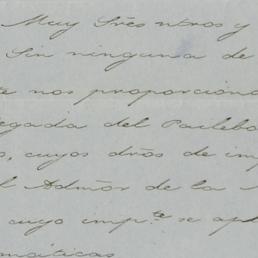 Muy Sres ntros y
Sin ninguna de
nos proporcion
legada del Pailebo
, cuyos dros de im
l Admor de la
cuyo impte se ap